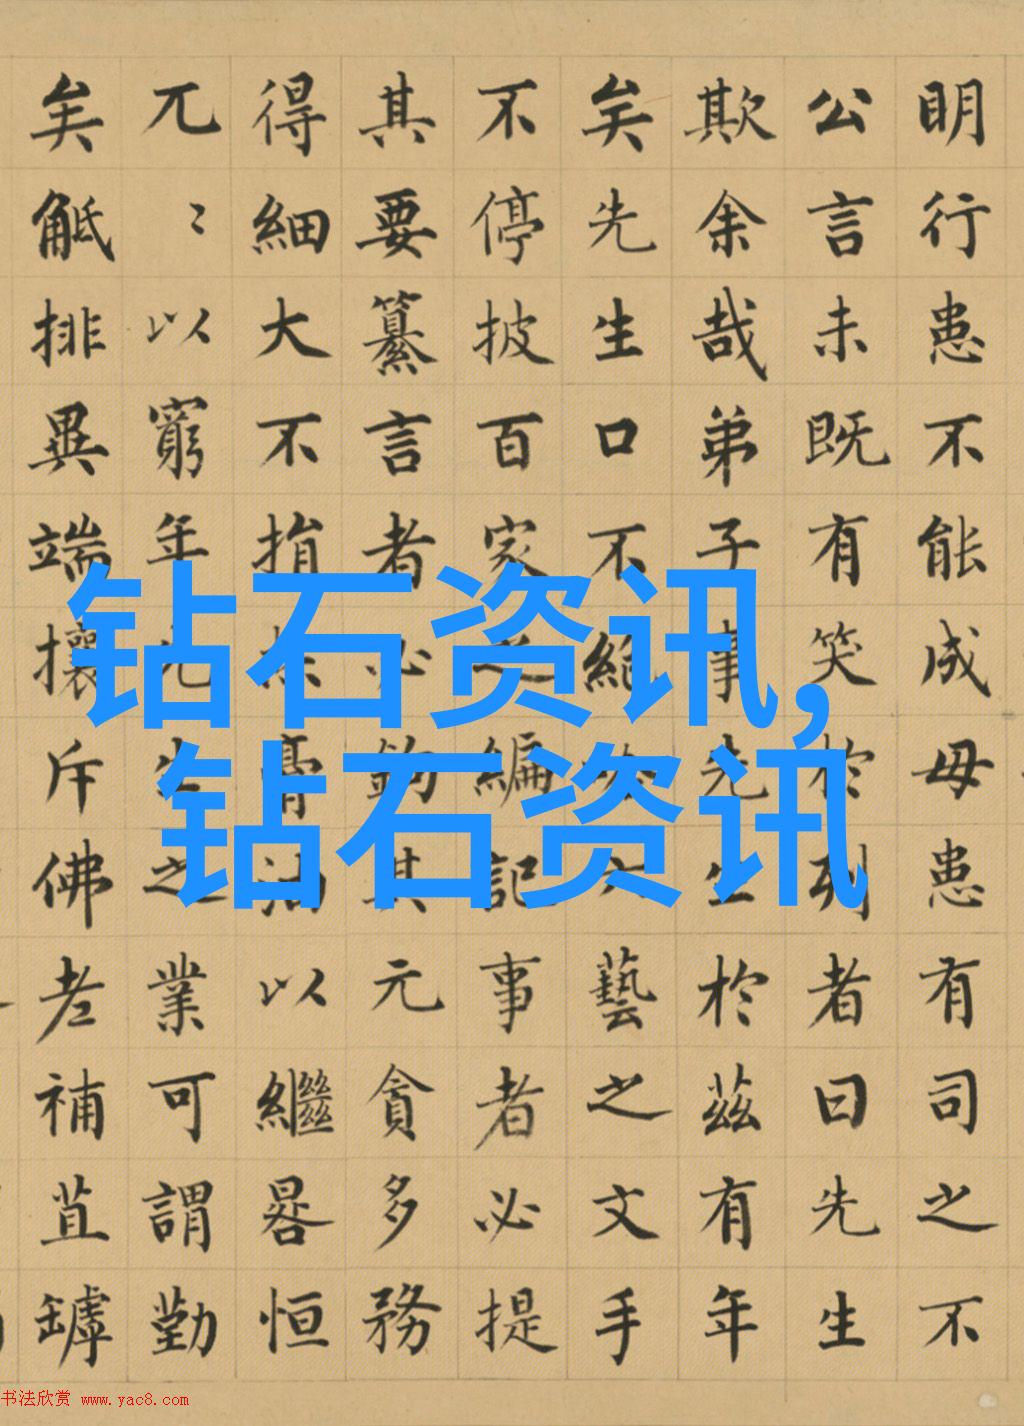 明行患不能成毋患有司之不
公言未既有笑於列者曰先生
欺余哉弟子事先生於茲有年
矣先生口不絕吟六藝之文手
不停披百家之編記事者必提
其要纂言者必鉤其元貪多務
得細大不捐焚膏油以繼晷恒
兀〻以窮年先生之業可謂勤
矣觝排異端攘斥佛老補苴罅
钻石资讯,
钻石资讯
书法欣赏 www.yac8.com